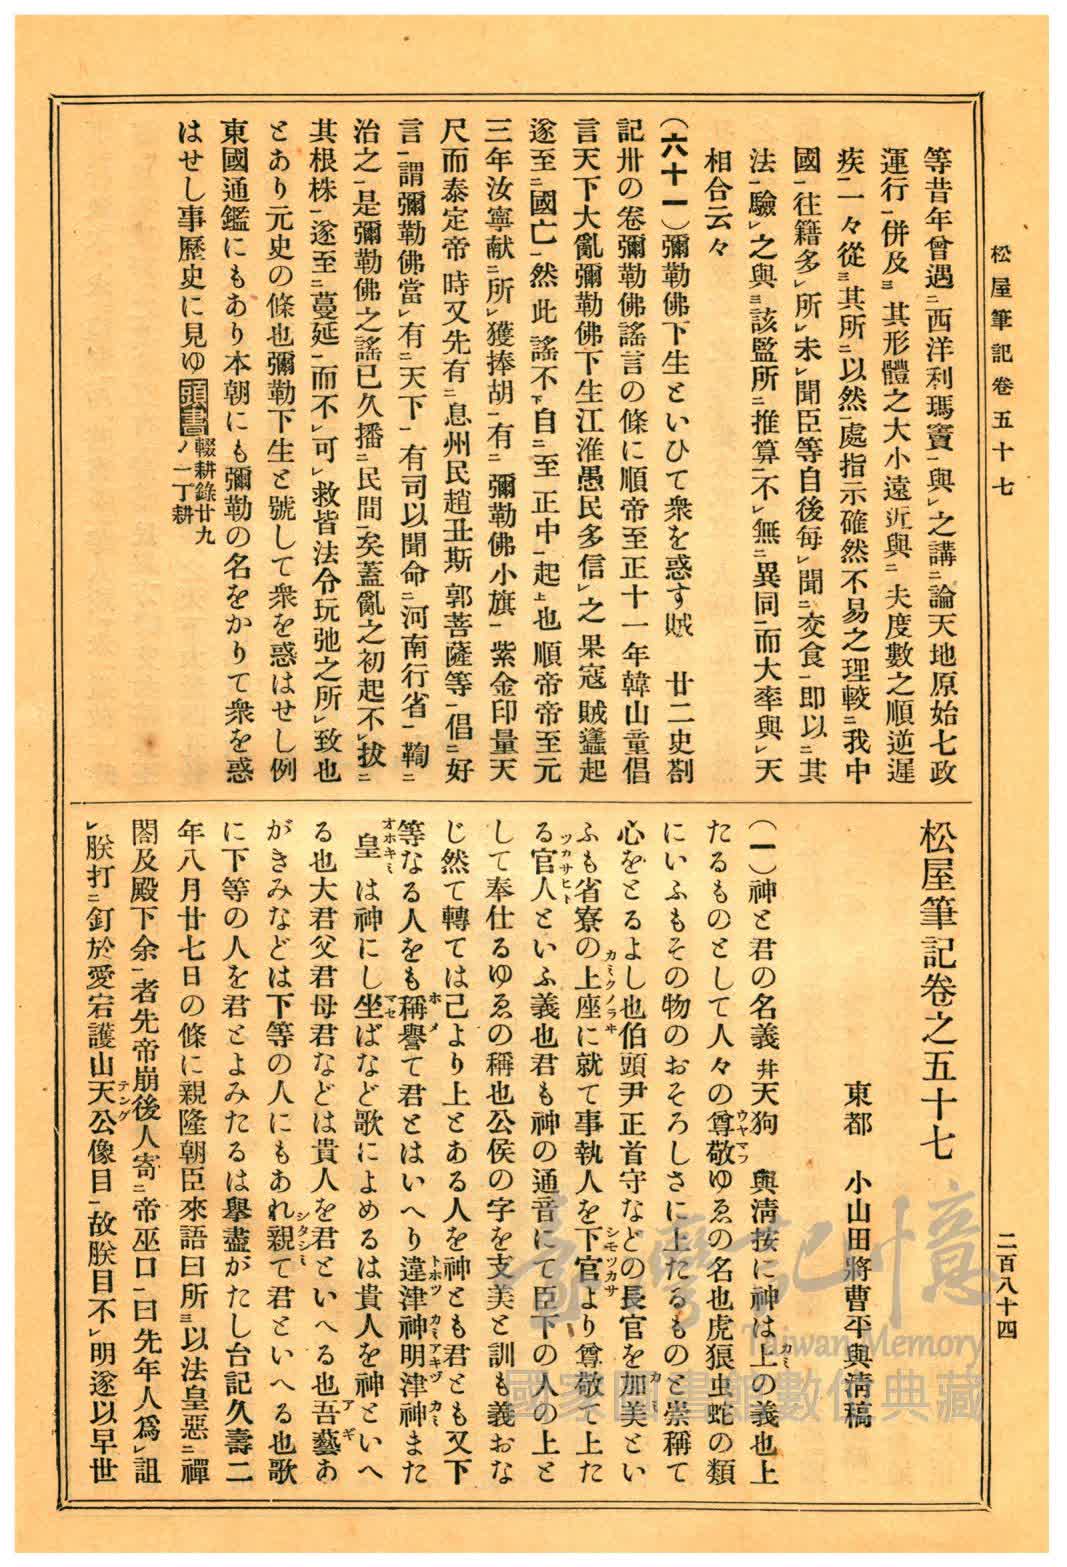 松屋筆記卷五十七
二百八十四
等昔年曾遇ニ西洋利瑪竇一與レ之講ニ論天地原始七政
運行一併及ヨ其形體之大小遠近與ニ夫度數之順逆遲
疾二一々從ヨ其所ニ以然一處指示確然不易之理較ニ我中
國一往籍多レ所レ未レ聞臣等自後每レ聞ニ交食一卽以ニ其
法一驗レ之與ヨ該監所ニ推算一不レ無ニ異同一而大率與レ天
相合云々
(六十一)彌勒佛下生といひて衆を惑す賊 廿二史劄
記卅の卷彌勒佛謠言の條に順帝至正十一年韓山童倡
言天下大亂彌勒佛下生江淮愚民多信レ之果寇賊蠭起
遂至ニ國亡一然此謠不下自ニ至正中一起上也順帝帝至元
三年汝寧献ニ所レ獲捧胡一有ニ彌勒佛小旗一紫金印量天
尺而泰定帝時又先有ニ息州民趙丑斯郭菩薩等一倡ニ妖
言一謂彌勒佛當レ有ニ天下一有司以聞命ニ河南行省一鞫ニ
治之一是彌勒佛之謠已久播ニ民間一矣蓋亂之初起不レ拔ニ
其根株一遂至ニ蔓延一而不レ可レ救皆法令玩弛之所レ致也
とあり元史の條也彌勒下生と號して衆を惑はせし例
東國通鑑にもあり本朝にも彌勒の名をかりて衆を惑
はせし事歷史に見ゆ頭書輟耕錄廿九
ノ一丁耕
松屋筆記卷之五十七
東都 小山田將曹平與清稿
(一)神と君の名義幷天狗 與清按に神は上カミの義也上
たるものとして人々の尊敬ウヤマフゆゑの名也虎狼虫蛇の類
にいふもその物のおそろしさに上たるものと崇稱て
心をとるよし也伯頭尹正首守などの長官を加美カミとい
ふも省寮の上座カミクノラヰに就て事執人を下官シモツカサより尊敬て上た
る官人ツカサヒトといふ義也君も神の通音にて臣下の人の上と
して奉仕るゆゑの稱也公侯の字を支美と訓も義おな
じ然て轉ては己より上とある人を神とも君とも又下
等なる人をも稱譽ホメて君とはいへり違津神トホツカミ明津神アキヅカミまた
皇オホキミは神にし坐マセばなど歌によめるは貴人を神といへ
る也大君父君母君などは貴人を君といへる也吾藝アギあ
がきみなどは下等の人にもあれ親シタシミて君といへる也歌
に下等の人を君とよみたるは擧盡がたし台記久壽二
年八月廿七日の條に親隆朝臣來語曰所ヨ以法皇惡ニ禪
閤及殿下余一者先帝崩後人寄ニ帝巫口一曰先年人爲レ詛
レ朕打ニ釘於愛宕護山天公テング像目一故朕目不レ明遂以早世
臺灣記憶
Taiwan Memory
國家圖書館數位典藏